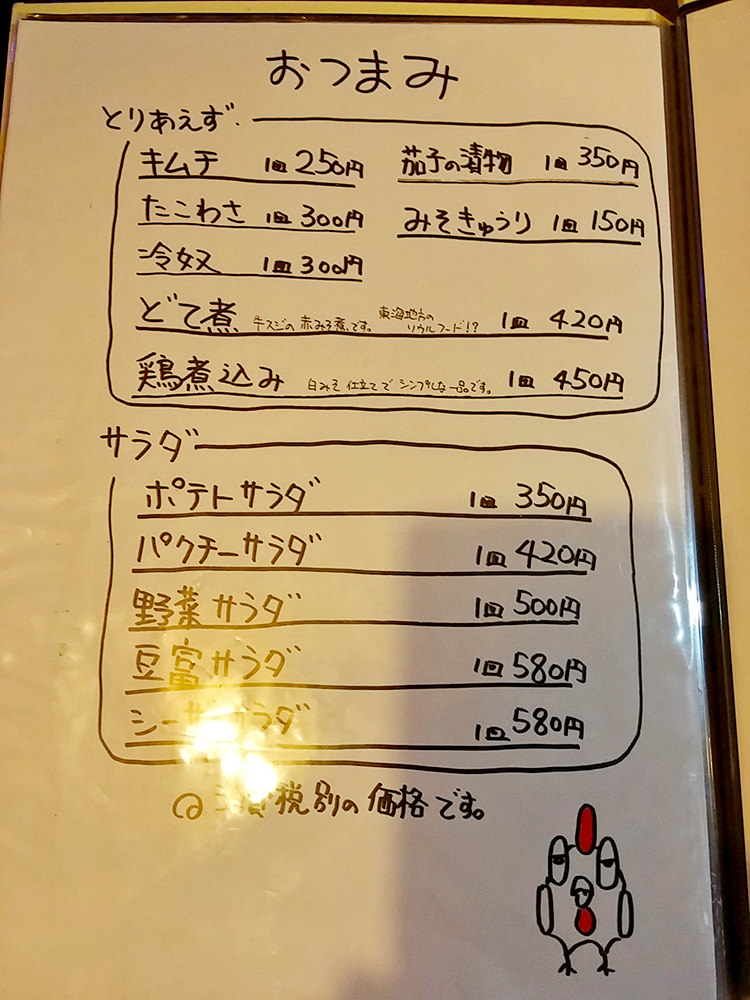 おつまみ
とりあえず
キムチ 1皿 250円 茄子の漬物 1皿 350円
たこわさ 1皿 300円 みそきゅうり 1皿 150円
冷奴 1皿 300円
どて煮 牛スジの赤みそ煮です。 東海地方のソウルフード!? 1皿 420円
鶏煮込み 白みそ仕立てでシンプルな一品です。 1皿 450円
サラダ
ポテトサラダ 1皿 350円
パクチーサラダ 1皿 420円
野菜サラダ 1皿 500円
豆富サラダ 1皿 580円
シーザーサラダ 1皿 580円
消費税別の価格です。